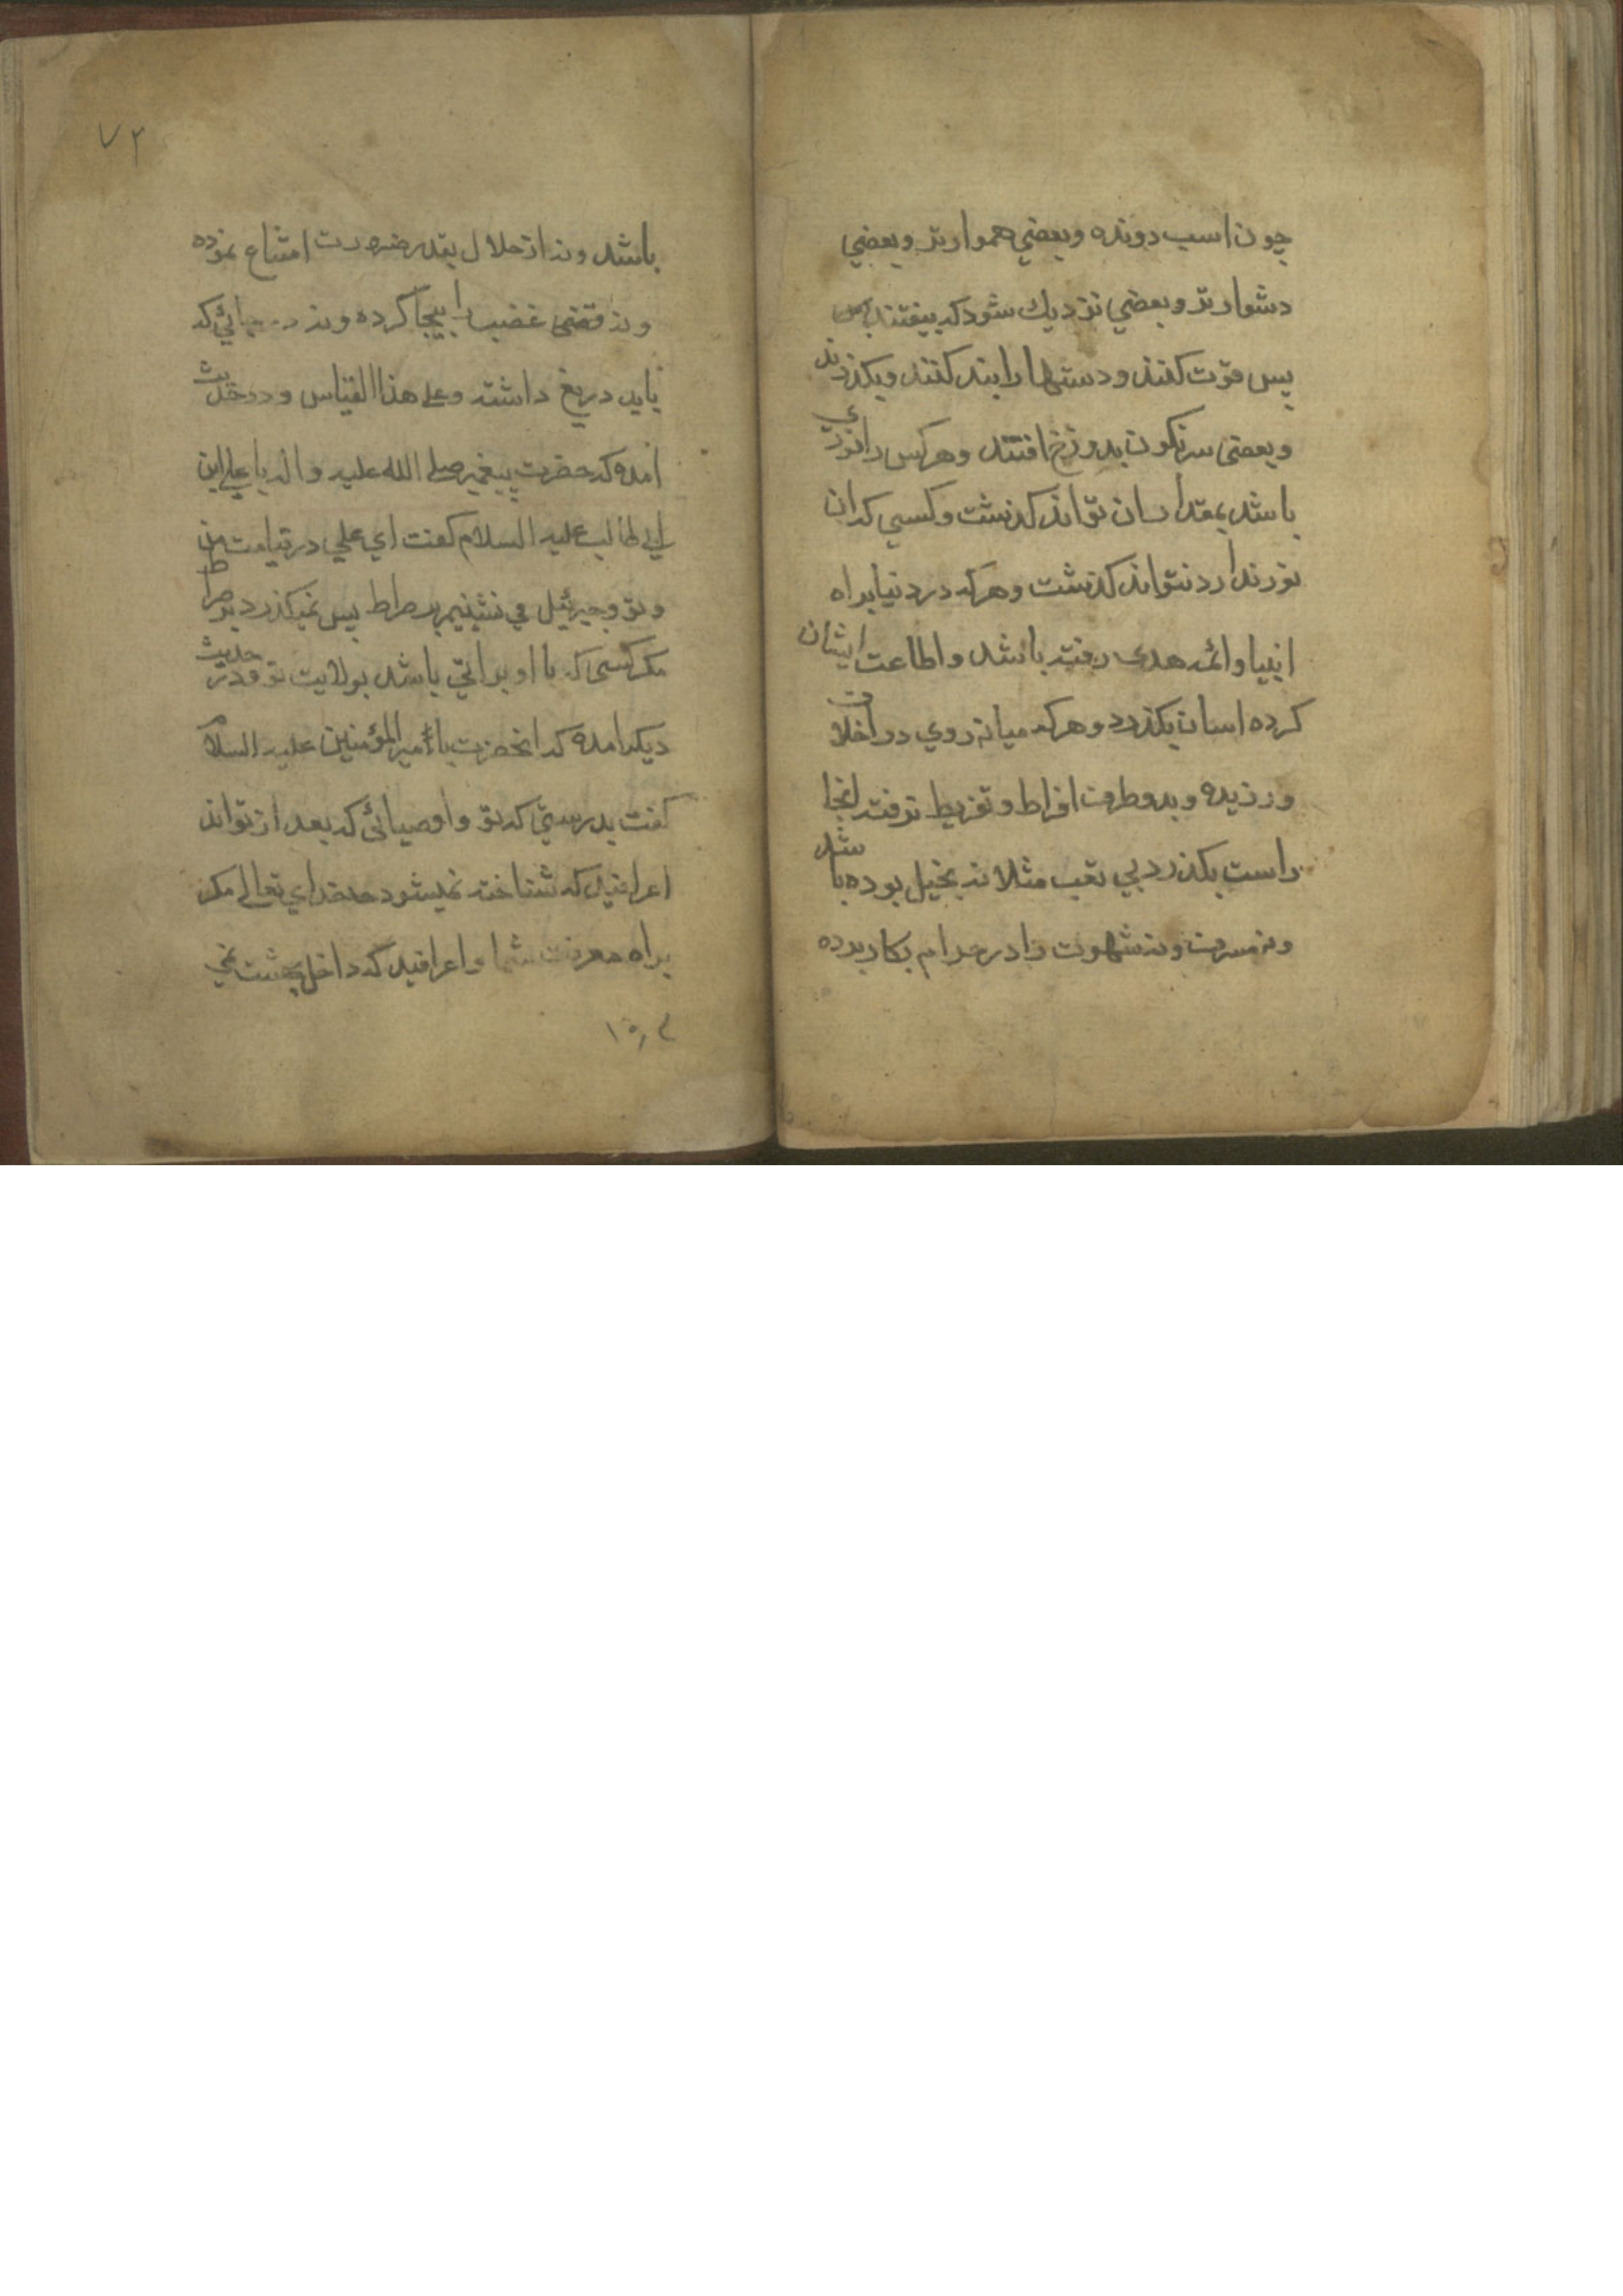 چون اسب دونده وبعضي هموارتر وبعضي
دشوارتر وبعضي نزديك شود كه بيفتند پس
پس قوّت كنند ودستها را بند كنند وبكذرند
وبعضى سرنكون بدوزخ افتند وهركس را نوري
باشد بمقدار ان تواند كذشت وكسي كه ان
نور ندارد نتواند كذشت وهركه در دنيا براه
انبيا وائمه هدى رفته باشد واطاعت ايشان
كرده اسان بكذرد وهركه ميانه روي در اخلاق
ورزيده وبدو طرف افراط وتفريط نرفته انجا
راست بكذرد بي تعب مثلا نه بخيل بوده باشد
ونه مسرف ونه شهوت را در حرام بكار برده
۷۲
باشد ونه از حلال بقدر ضرورت امتناع نموده
ونه قتضى غضب را بيجا كرده ونه در جائي كه
بايد دريغ داشته وعلى هذا القياس ودر حديث
امده كه حضرت پيغمبر صلى الله عليه واله با علي ابن
ابي طالب عليه السلام كفت اي علي در قيامت من
وتو وجبرئيل مي نشينيم بر صراط پس نميكذرد بر صراط
مكر كسى كه با او براتي باشد بولايت تو ودر حديث
ديكر امده كه انحضرت با أمير المؤمنين عليه السلام
كفت بدرستي كه تو واوصيائي كه بعد از تواند
اعرافيد كه شناخته نميشود خداي تعالى مكر
براه معرفت شما واعرافيد كه داخل بهشت نمي